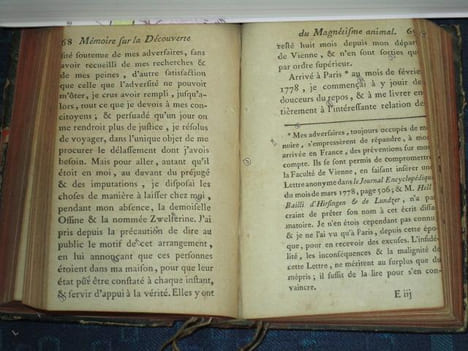 68 Mémoire sur la Découverte
sité soutenue de mes adversaires, sans
avoir recueilli de mes recherches &
de mes peines, d'autre satisfaction
que celle que l'adversité ne pouvoir
m'ôter, je crus avoir rempli, jusqu'a-
lors, tout ce que je devois à mes con-
citoyens; & persuadé qu'un jour on
me rendroit plus de justice, je résolus
de voyager, dans l'unique objet de me
procurer le délassement dont j'avois
besoin. Mais pour aller, autant qu'il
étoit en moi, au devant du préjugé
& des imputations, je disposai les
choses de manière à laisser chez moi,
pendant mon absence, la demoiselle
Ossine & la nommée Zwelferine. J'ai
pris depuis la précaution de dire au
public le motif de cet arrangement,
en lui annonçant que ces personnes
étoient dans ma maison, pour que leur
état pût être constaté à chaque instant,
& servir d'appui à la vérité. Elles y ont
du Magnétisme animal.
resté huit mois depuis mon départ
de Vienne, & n'en sont sorties que
par ordre supérieur.
Arrivé à Paris * au mois de février
1778, je commençai à y jouir des
douceurs du repos, & à me livrer en-
tièrement à l'intéressante relation de
* Mes adversaires, toujours occupés de me
nuire, s'empressèrent de répandre, à mon
arrivée en France, des préventions sur mon
compte. Ils se sont permis de compromettre
la Faculté de Vienne, en faisant insérer une
Lettre anonyme dans le Journal Encyclopédique
du mois de mars 1778, page 506; & M. Hell,
Bailli d'Hirsingen & de Lundzer, n'a pas
craint de prêter son nom à cet écrit diffa-
matoire. Je n'en étois cependant pas connu,
& je ne l'ai vu qu'à Paris, depuis cette épo-
que, pour en recevoir des excuses. L'infidé-
lité, les inconséquences & la malignité de
cette Lettre, ne méritent au surplus que du
mépris; il suffit de la lire pour s'en con-
vaincre.
E iij